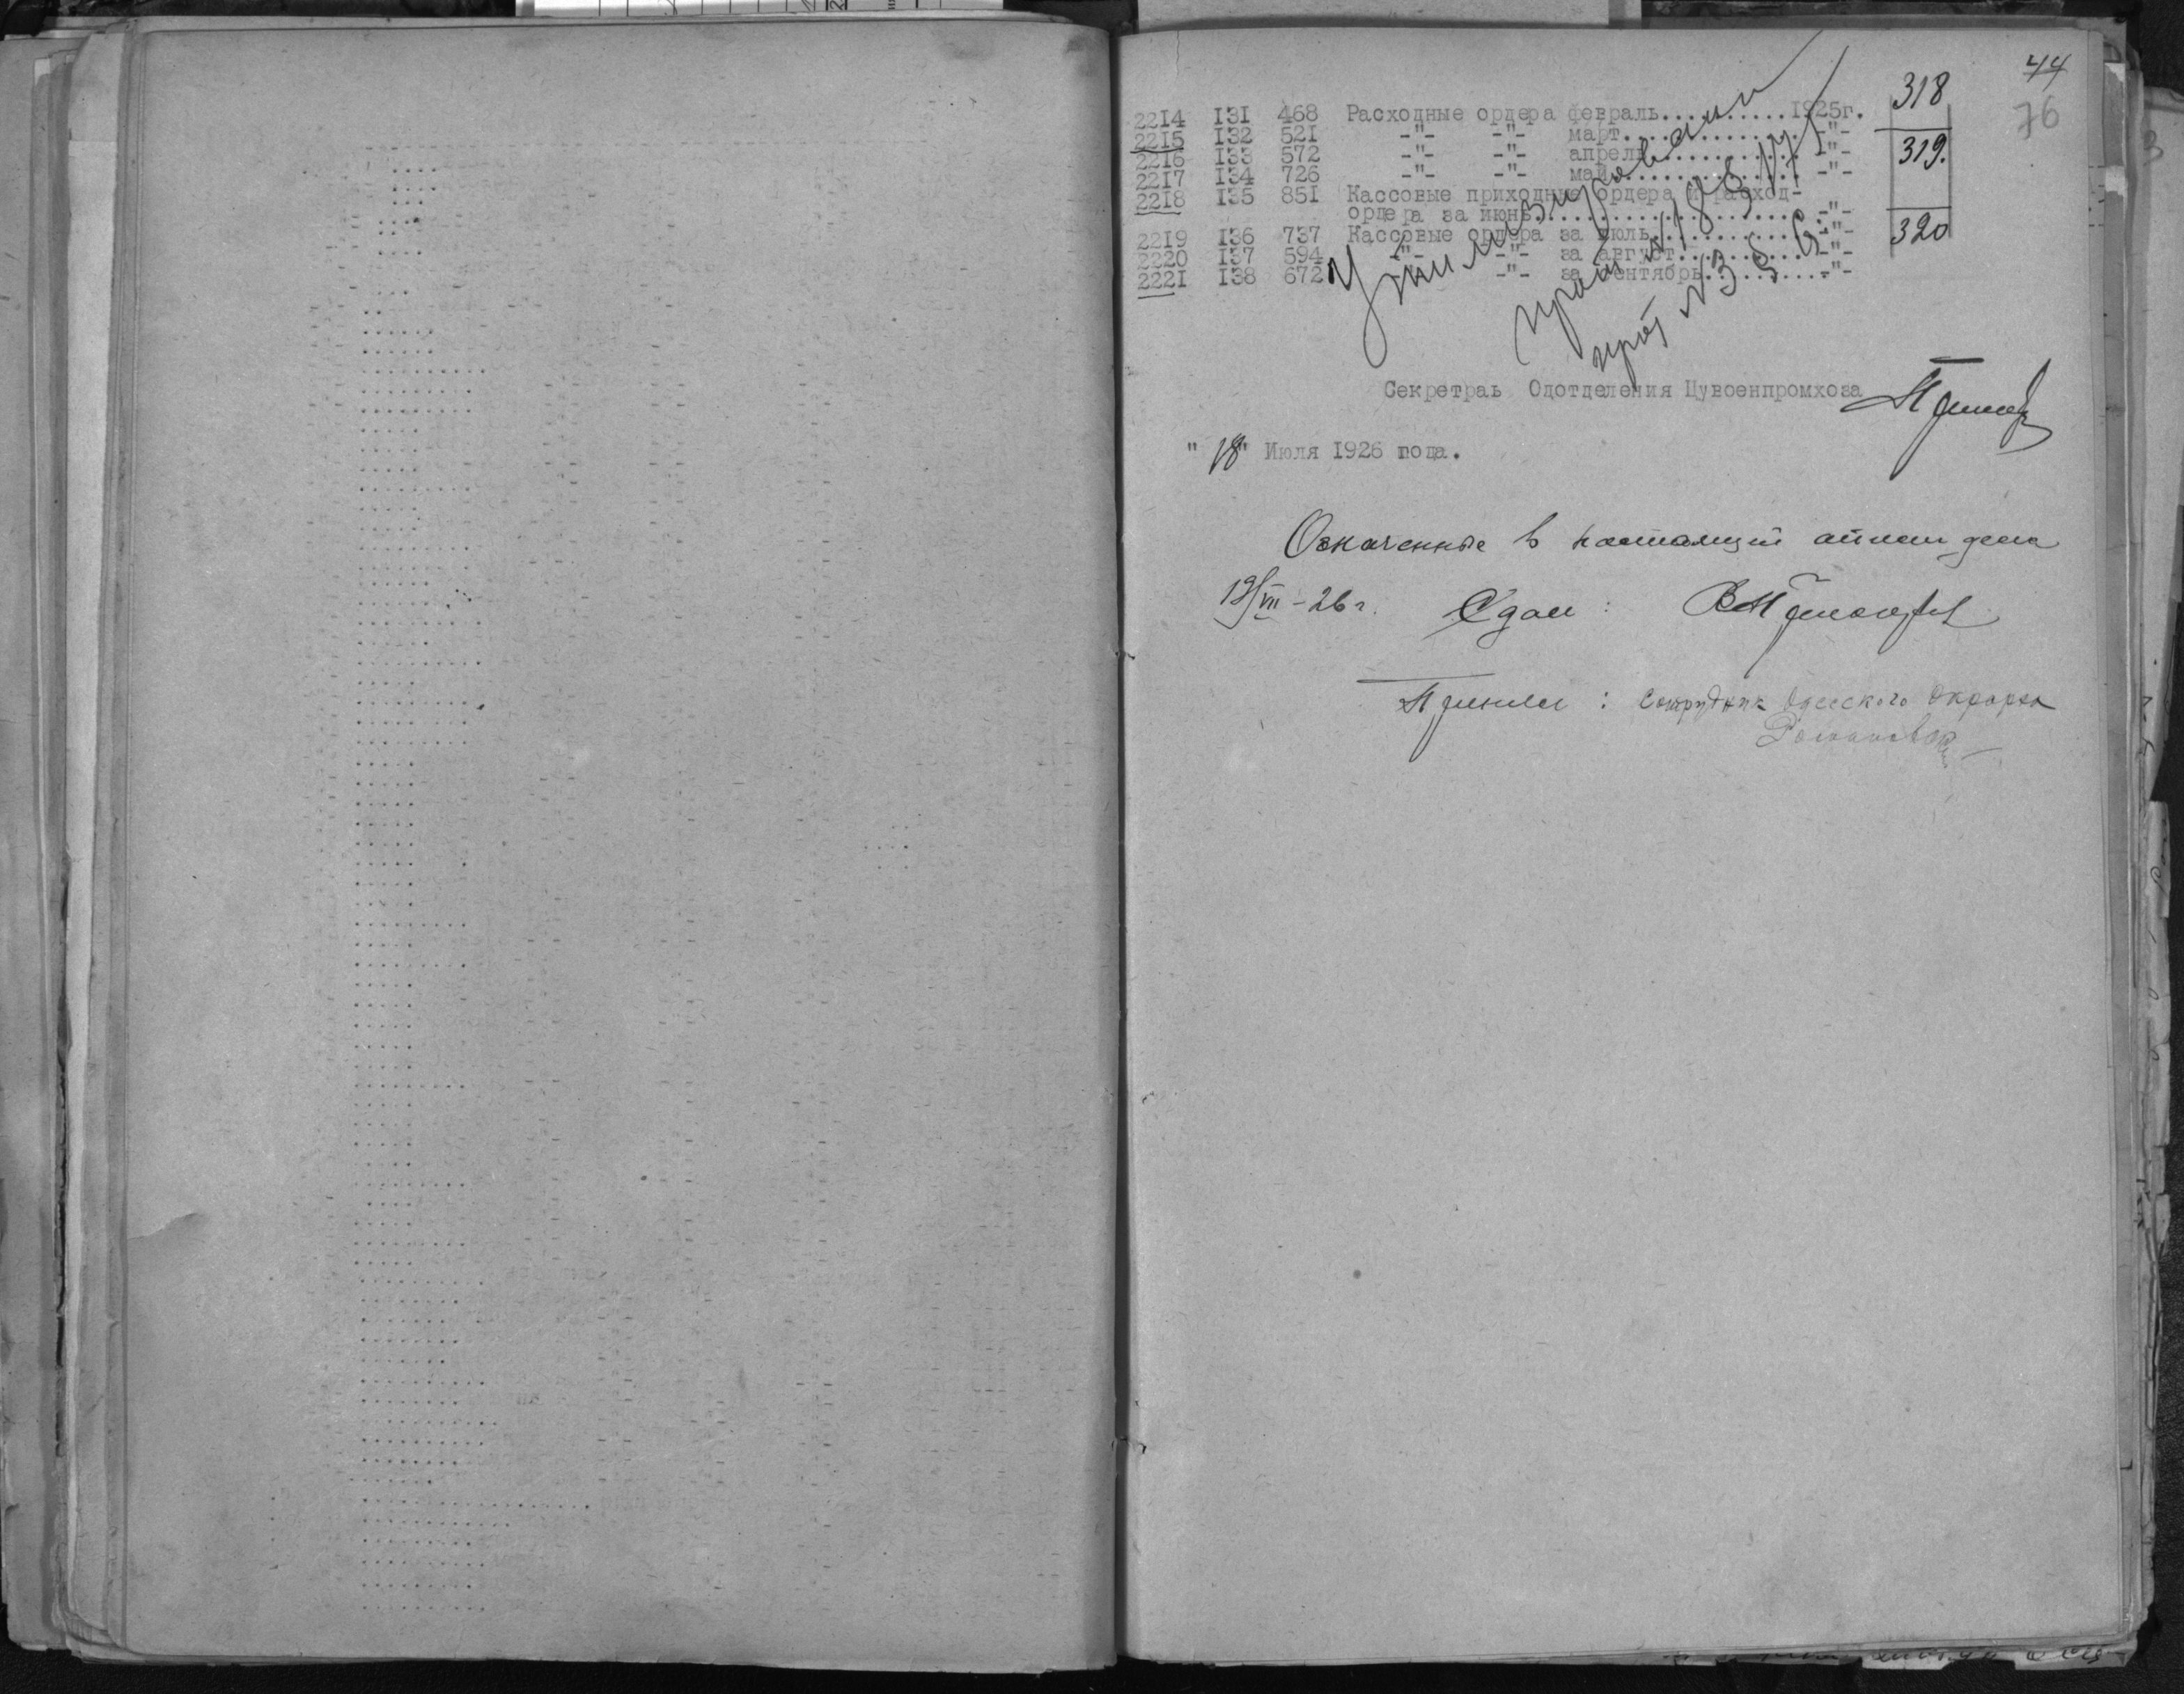 44
76
318
2214 131 468 Расходные ордера февраль..........1925г.
2215 132 521 -"- -"- март.............. -"-
319.
2216 133 572 -"- -"- апрель............ -"-
2217 134 726 -"- -"- май............... -"-
2218 135 851 Кассовые приходные ордера и расход-
ордера за июнь..................... -"-
320
2219 136 737 Кассовые ордера за июль............ -"-
2220 137 594 -"- -"- за август.......... -"-
2221 138 672 -"- за сентябрь.......... -"-
Утилизировани
прот №
прот №
Секретраь Одотделения Цувоенпромхоза
"18" Июля 1926 года.
Означенные в настоящей описи дела
19/VII-26г. Сдал:
Принял: Сотрудник Одесского Окрарха